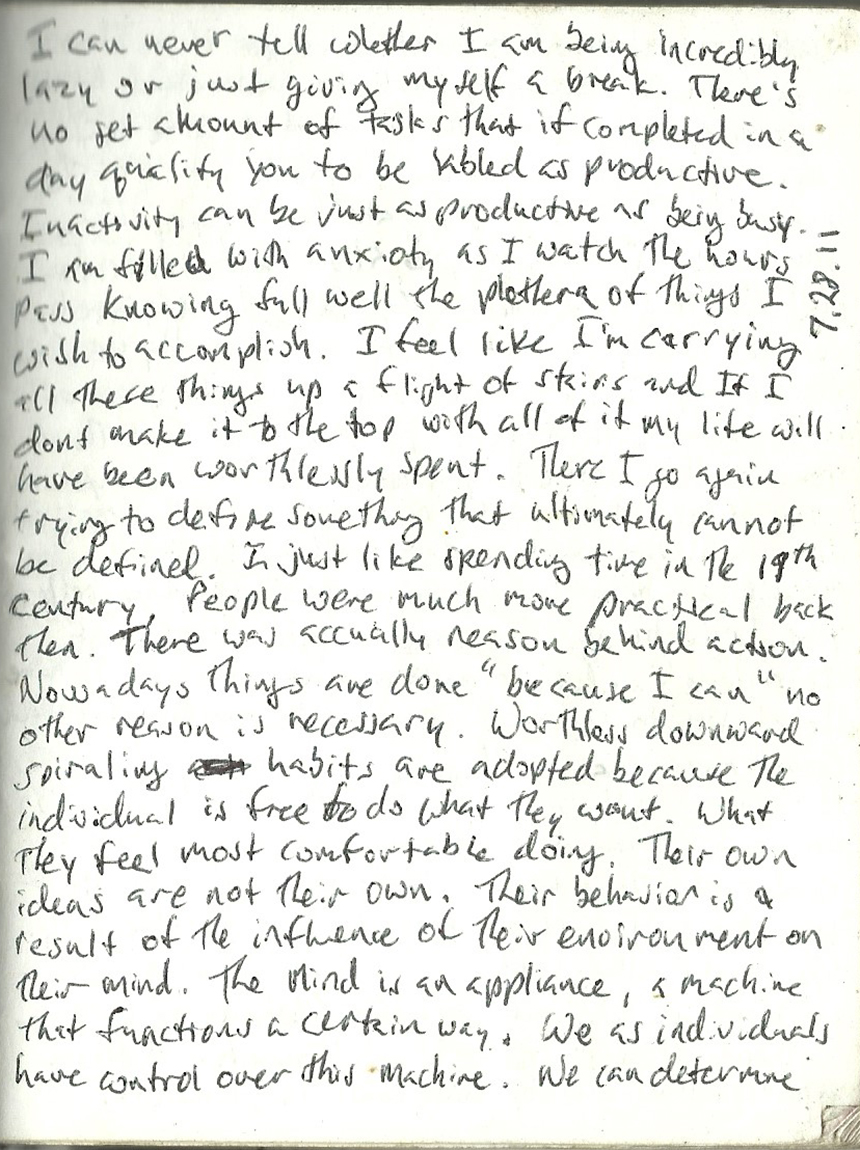 I can never tell whether I am being incredibly
lazy or just giving myself a break. There's
no set amount of tasks that if completed in a
day qualify you to be labled as productive.
Inactivity can be just as productive as being busy.
I am filled with anxiety as I watch the hours
7.28.11
pass knowing full well the plethera of things I
wish to accomplish. I feel like I'm carrying
all these things up a flight of stairs and If I
dont make it to the top with all of it my life will
have been worthlessly spent. There I go again
trying to define something that ultimately cannot
be defined. Is just like spending time in the 19th
century, People were much more practical back
then. There was accually reason behind action.
Nowadays things are done "because I can" no
other reason is necessary. Worthless downward
spiraling habits are adopted because the
individual is free to do what they want. What
They feel most comfortable doing. Their own
ideas are not their own. Their behavior is a
result of the influence of their environment on
their mind. The Mind is an appliance, a machine
that functions a certain way. We as individuals
have control over this machine. We can determine